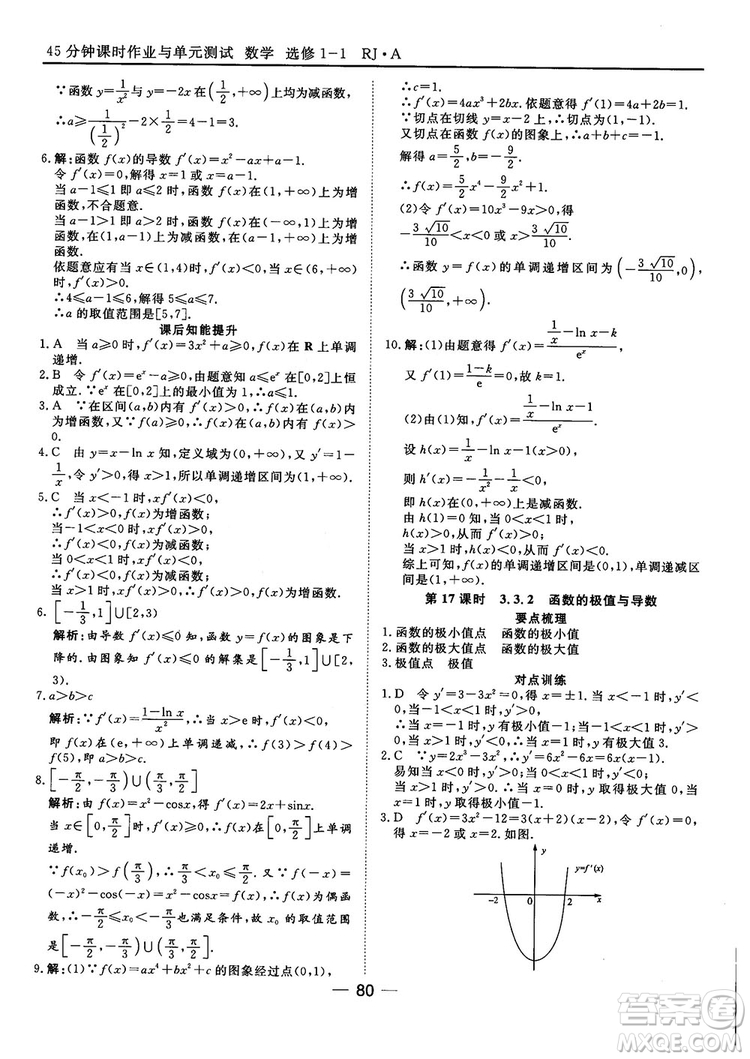 45分钟课时作业与单元测试 数学 选修1-1 RJ·A
∵函数 y=1/x²-2×1/x 在[1/2,+∞)上均为减函数,
∴a≥1/(1/2)²-2×1/(1/2)=4-1=3.
6.解:函数 f(x)的导数 f′(x)=x²-ax+a-1.
令 f′(x)=0,解得 x=1 或 x=a-1.
当 a-1≤1 即 a≤2 时,函数 f(x)在(1,+∞)上为增
函数,不合题意.
当 a-1>1 即 a>2 时,函数 f(x)在(-∞,1)上为增函
数,在(1,a-1)上为减函数,在(a-1,+∞)上为增
函数.
依题意应有当 x∈(1,4)时,f′(x)<0,
当 x∈(6,+∞)时,f′(x)>0.
∴4≤a-1≤6,解得 5≤a≤7.
∴a 的取值范围是[5,7].
课后知能提升
1.A 当 a≥0 时,f′(x)=3x²+a≥0,f(x)在 R 上单调
递增.
2.B 令 f′(x)=eˣ-a≥0,由题意知 a≤eˣ 在[0,2]上恒
成立.∵eˣ 在[0,2]上的最小值为 1,∴a≤1.
3.A ∵在区间(a,b)内有 f′(x)>0,∴f(x)在(a,b)
内为增函数,且 f(a)≥0,∴在(a,b)内有 f(x)>
0.
4.C 由 y=x-ln x 知,定义域为(0,+∞),又 y′=1-
1/x,令 y′>0,得 x>1,所以单调递增区间为(1,+∞).
5.C 当 x<-1 时,xf′(x)<0,
∴f′(x)>0,∴f(x)为增函数;
当-1<x<0 时,xf′(x)>0,
∴f′(x)<0,∴f(x)为减函数;
当 0<x<1 时,xf′(x)<0,
∴f′(x)<0,∴f(x)为减函数;
当 x>1 时,xf′(x)>0,
∴f′(x)>0,∴f(x)为增函数.
6.[-1/3,1]∪[2,3)
解析:由导数 f′(x)≤0 可知,函数 f(x)的图象是下降
的,由图象可知 f′(x)≤0 的解集是[-1/3,1]∪[2,
3).
7.a>b>c
解析:∵f′(x)=(1-ln x)/x²,令 f′(x)<0,解得 x>e,
即 f(x)在(e,+∞)上单调递减,∴f(3)>f(4)>
f(5),即 a>b>c.
8.[-π/2,-π/3)∪(π/3,π/2]
解析:∵f(x)=x²-cosx,得 f′(x)=2x+sinx.
当 x∈[0,π/2]时,f′(x)≥0,∴f(x)在[0,π/2]上单调
递增.
∵f(x₀)>f(π/3),∴π/3<x₀≤π/2.又∵f(-x)=
(-x)²-cos(-x)=x²-cosx=f(x),∴f(x)为偶函
数.∴-π/2≤x₀<-π/3 也满足条件,故 x₀ 的取值范围
是[-π/2,-π/3)∪(π/3,π/2].
9.解:(1)∵f(x)=ax⁴+bx²+c 的图象经过点(0,1),
∴c=1.
∴f′(x)=4ax³+2bx.依题意得 f′(1)=4a+2b=1.
∵切点在切线 y=x-2 上,∴切点为(1,-1).
又切点在函数 f(x)的图象上,∴a+b+c=-1.
解得 a=5/2,b=-9/2.
∴f(x)=5/2x⁴-9/2x²+1.
(2)令 f′(x)=10x³-9x>0,得
-3√10/10<x<0 或 x>3√10/10.
∴函数 f(x)的单调递增区间为(-3√10/10,0),
(3√10/10,+∞).
10.解:(1)由题意得 f′(x)=(1/x-ln x-k)/eˣ,
又 f′(1)=(1-k)/e=0,故 k=1.
(2)由(1)知,f′(x)=(1/x-ln x-1)/eˣ.
设 h(x)=1/x-ln x-1(x>0),
则 h′(x)=-1/x²-1/x<0,
即 h(x)在(0,+∞)上是减函数.
由 h(1)=0 知,当 0<x<1 时,
h(x)>0,从而 f′(x)>0;
当 x>1 时,h(x)<0,从而 f′(x)<0.
综上可知,f(x)的单调递增区间是(0,1),单调递减区
间是(1,+∞).
第17课时 3.3.2 函数的极值与导数
要点梳理
1.函数的极小值点 函数的极小值
2.函数的极大值点 函数的极大值
3.极值点 极值
对点训练
1.D 令 y′=3-3x²=0,得 x=±1.当 x<-1 时,y′<
0;当-1<x<1 时,y′>0;当 x>1 时,y′<0.∴当 x=
-1 时,函数有极小值-1;当 x=1 时,函数有极大值 3.
2.C ∵y′=2x(x²-1)=0,得 x₁=0,x₂=1,x₃=-1,
易知当 x<-1 时,y′<0;当-1<x<0 时,y′>0;
当 0<x<1 时,y′<0;当 x>1 时,y′>0.
∴当 x=-1,1 时,函数取极小值-1.
3.D f′(x)=3x²-12=3(x+2)(x-2),令 f′(x)=0,
得 x=-2 或 x=2.如图.
y
y=f′(x)
-2 0 2 x
— 80 —